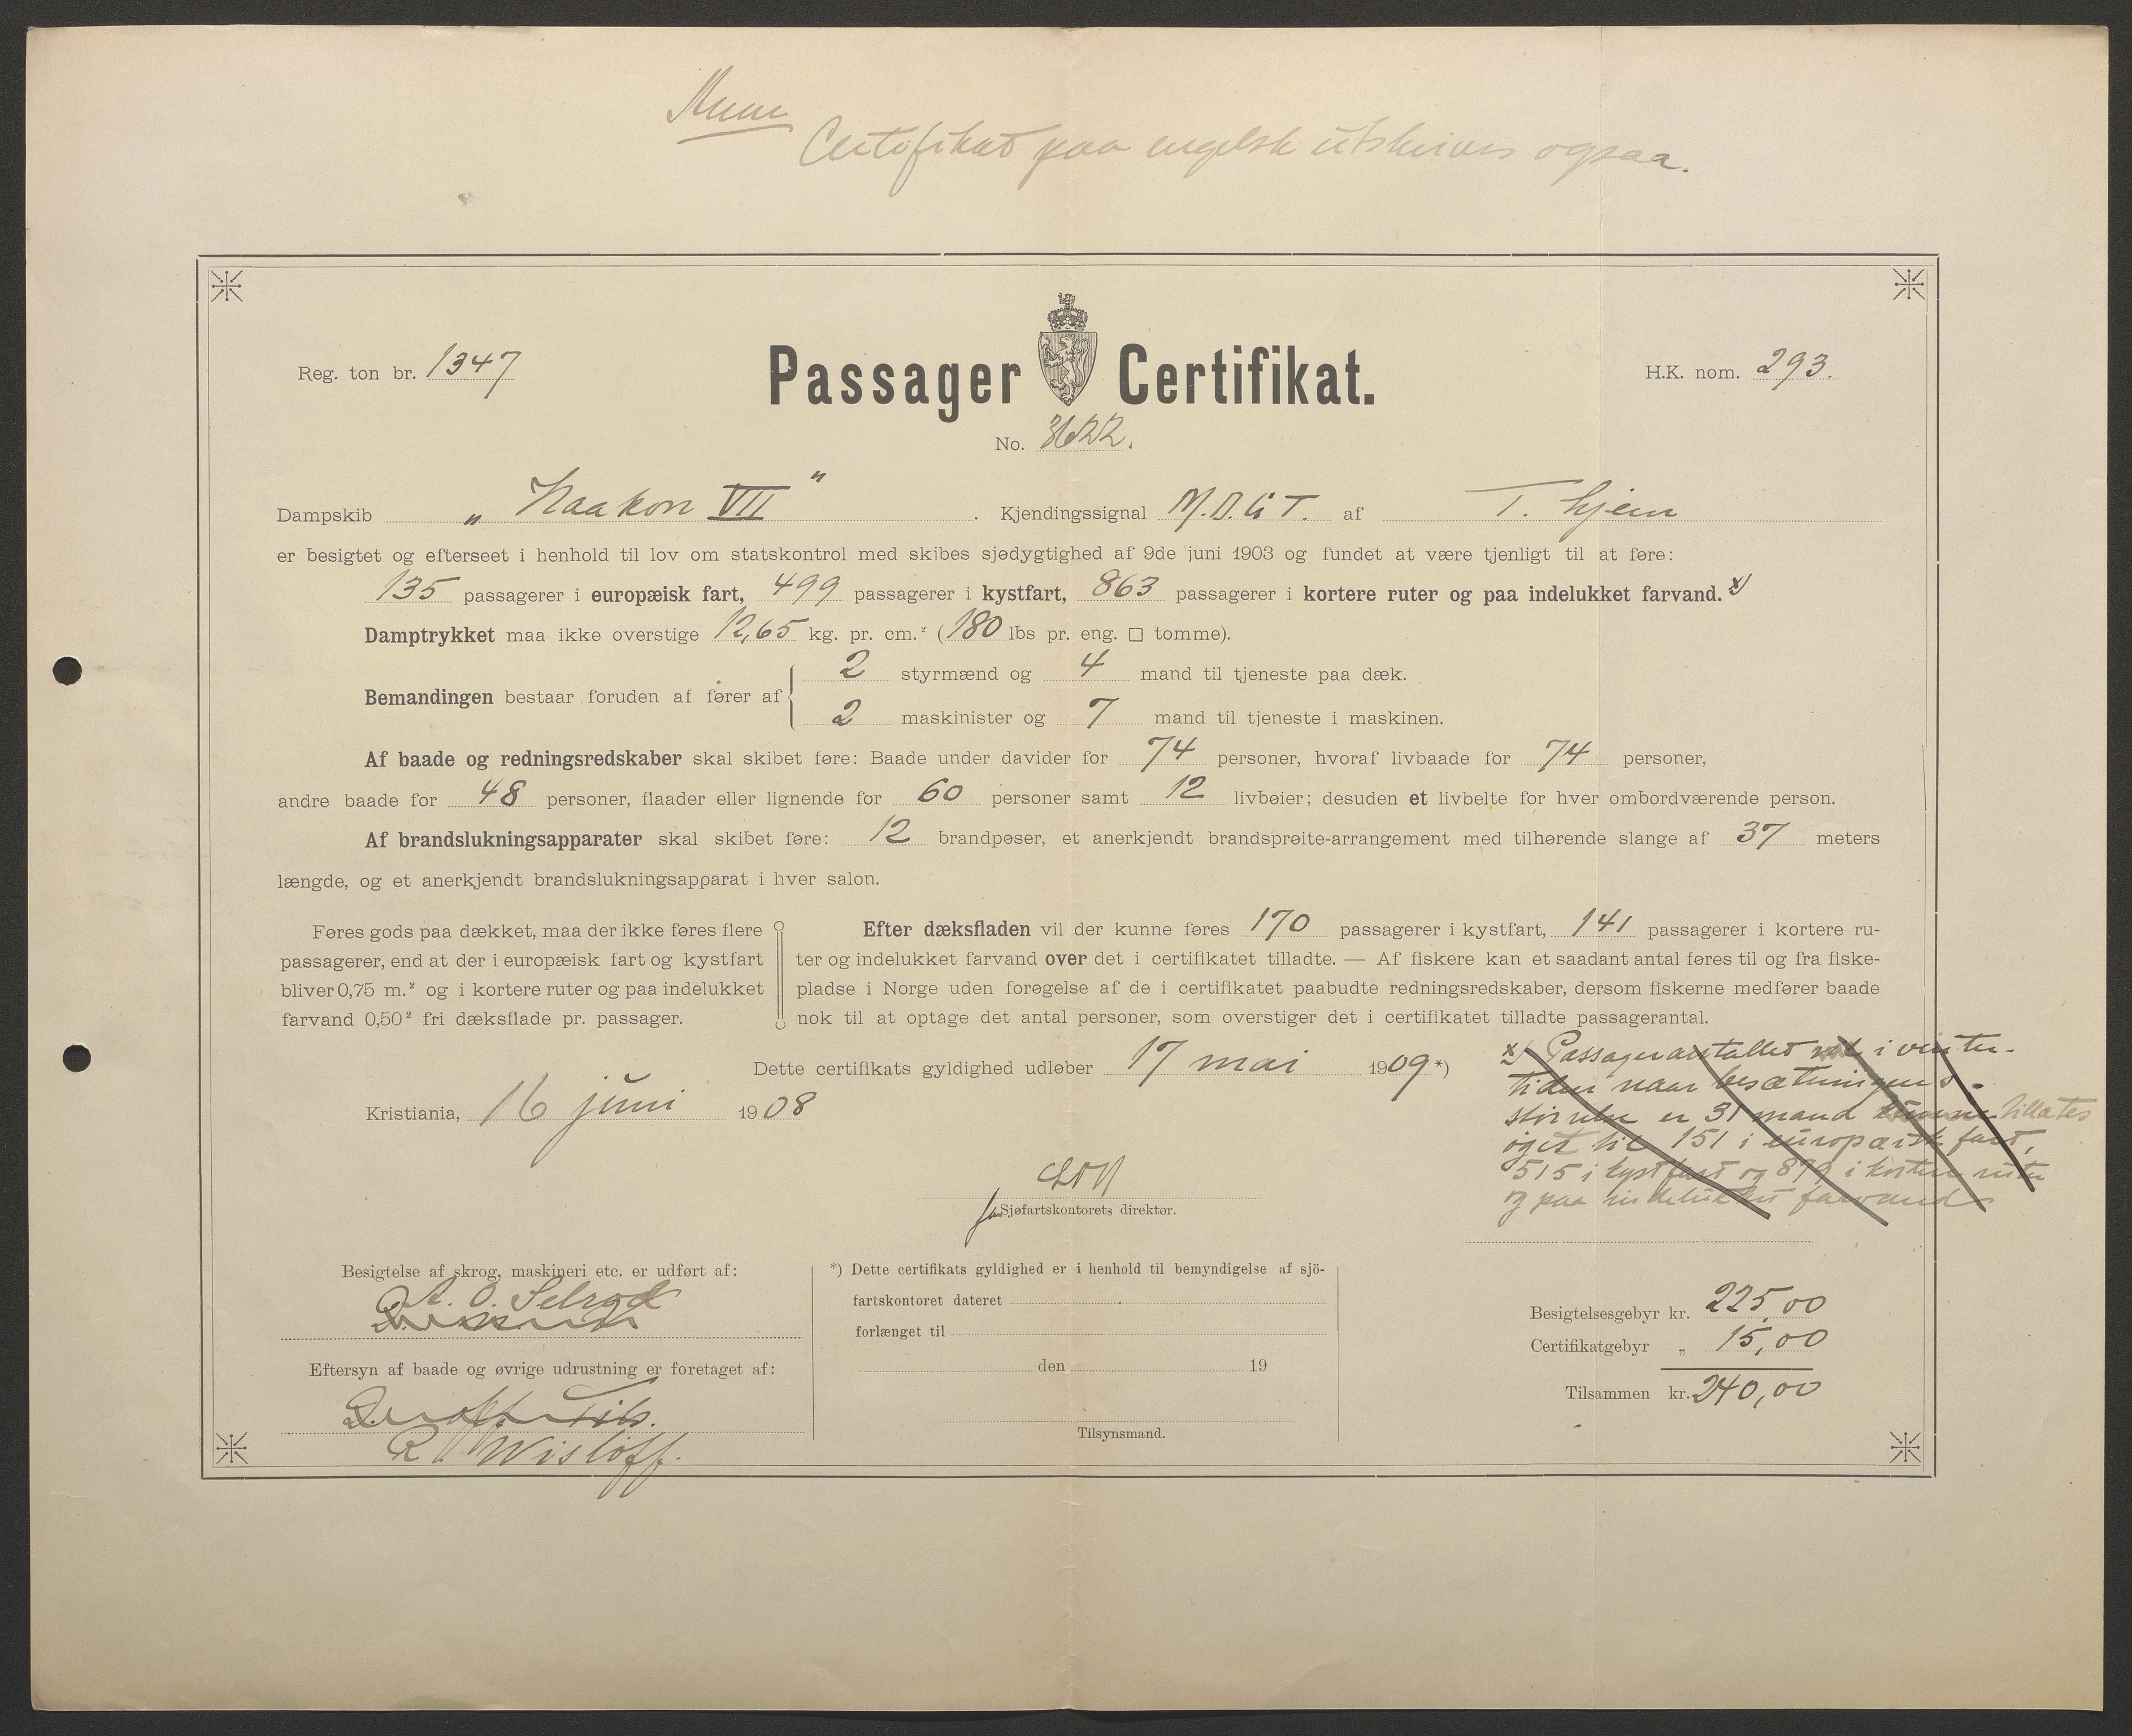 Certifikat paa engelsk utskrives ogsaa.
Reg. ton br. 1347
Passager Certifikat.
H.K. nom. 293.
No. 3622.
Dampskib „Haakon VII“. Kjendingssignal M.D.G.T. af T. hjem
er besigtet og efterseet i henhold til lov om statskontrol med skibes sjødygtighed af 9de juni 1903 og fundet at være tjenligt til at føre:
135 passagerer i europæisk fart, 499 passagerer i kystfart, 863 passagerer i kortere ruter og paa indelukket farvand. x)
Damptrykket maa ikke overstige 12,65 kg. pr. cm.² (180 lbs pr. eng. □ tomme).
Bemandingen bestaar foruden af fører af
2 styrmænd og 4 mand til tjeneste paa dæk.
2 maskinister og 7 mand til tjeneste i maskinen.
Af baade og redningsredskaber skal skibet føre: Baade under davider for 74 personer, hvoraf livbaade for 74 personer,
andre baade for 48 personer, flaader eller lignende for 60 personer samt 12 livbøier; desuden et livbelte for hver ombordværende person.
Af brandslukningsapparater skal skibet føre: 12 brandpøser, et anerkjendt brandsprøite-arrangement med tilhørende slange af 37 meters
længde, og et anerkjendt brandslukningsapparat i hver salon.
Føres gods paa dækket, maa der ikke føres flere
passagerer, end at der i europæisk fart og kystfart
bliver 0,75 m.² og i kortere ruter og paa indelukket
farvand 0,50² fri dæksflade pr. passager.
Efter dæksfladen vil der kunne føres 170 passagerer i kystfart, 141 passagerer i kortere ru-
ter og indelukket farvand over det i certifikatet tilladte. — Af fiskere kan et saadant antal føres til og fra fiske-
pladse i Norge uden forøgelse af de i certifikatet paabudte redningsredskaber, dersom fiskerne medfører baade
nok til at optage det antal personer, som overstiger det i certifikatet tilladte passagerantal.
Dette certifikats gyldighed udløber 17 mai 1909 *)
Kristiania, 16 juni 1908
x) Passagerantallet i vinter-
tiden naar besætningens
størrelse er 31 mand tillates
øget til 151 i europæisk fart,
515 i kystfart og 879 i kortere ruter
og paa indelukket farvand
Sjøfartskontorets direktør.
Besigtelse af skrog, maskineri etc. er udført af:
A. O. Selrod
Eftersyn af baade og øvrige udrustning er foretaget af:
R Wisløff.
*) Dette certifikats gyldighed er i henhold til bemyndigelse af sjö-
fartskontoret dateret
forlænget til
den 19
Tilsynsmand.
Besigtelsesgebyr kr. 225,00
Certifikatgebyr „ 15,00
Tilsammen kr. 240,00